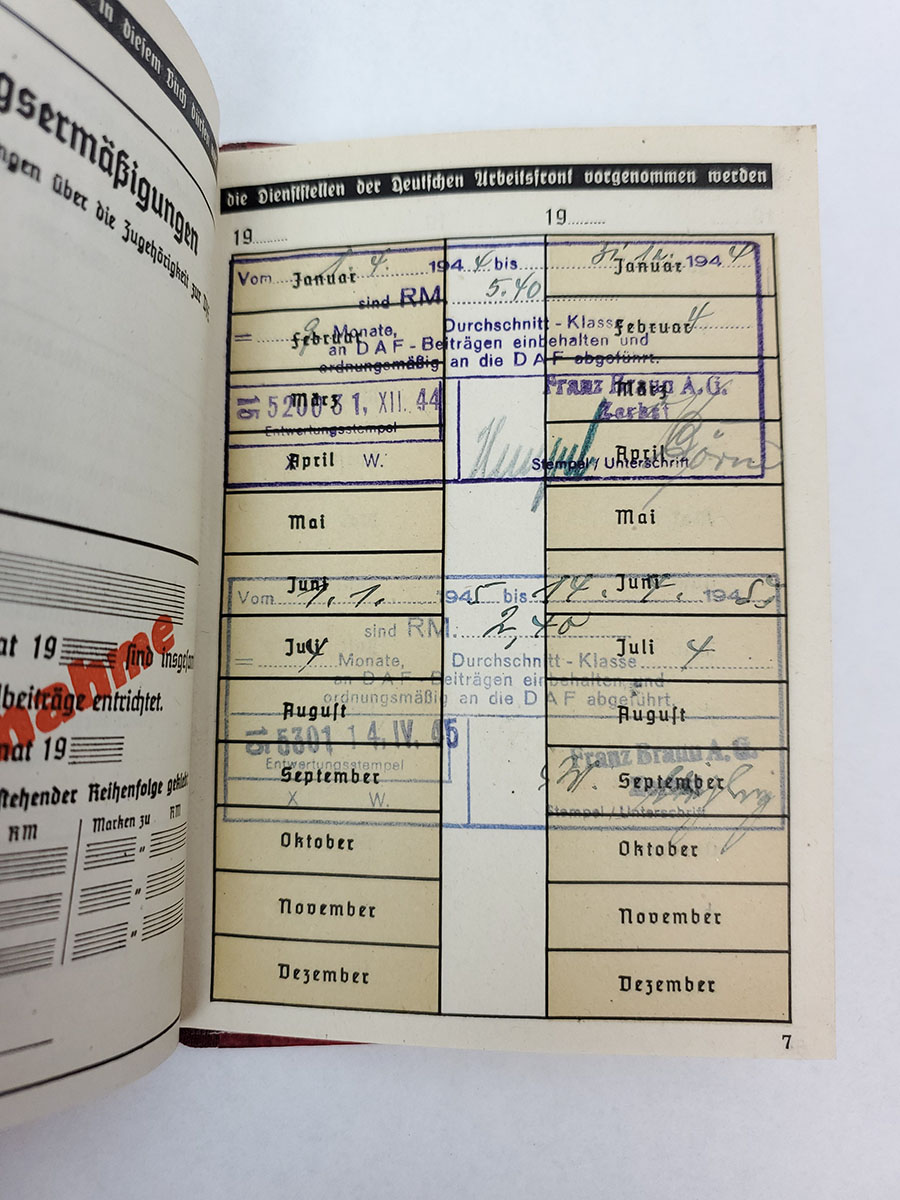 in diesem Buch dürfen
gsermäßigungen
ngen über die Zugehörigkeit zur
at 19 sind insges
nahme
lbeiträge entrichtet.
nat 19
stehender Reihenfolge geklebt
RM Marken zu RM
"
"
"
die Dienststellen der Deutschen Arbeitsfront vorgenommen werden
19 19
Januar Januar
Vom 1. 4. 194 4 bis 31. 12. 194 4
sind RM. 5.40
Februar Februar
= 9 Monate, Durchschnitt - Klasse 4
an DAF - Beiträgen einbehalten und
ordnungsmäßig an die DAF abgeführt.
März März
15 5200 31. XII. 44 Franz Braun A.G.
Zerbst
Entwertungsstempel
April April
X W. Stempel / Unterschrift
Mai Mai
Juni Juni
Vom 1. 1. 1945 bis 14. 4. 1945
sind RM. 2,40
Juli Juli
= 4 Monate, Durchschnitt - Klasse 4
an DAF - Beiträgen einbehalten und
ordnungsmäßig an die DAF abgeführt.
August August
15 5301 14. IV. 45 Franz Braun A.G.
Entwertungsstempel
September September
X W. Stempel / Unterschrift
Oktober Oktober
November November
Dezember Dezember
7